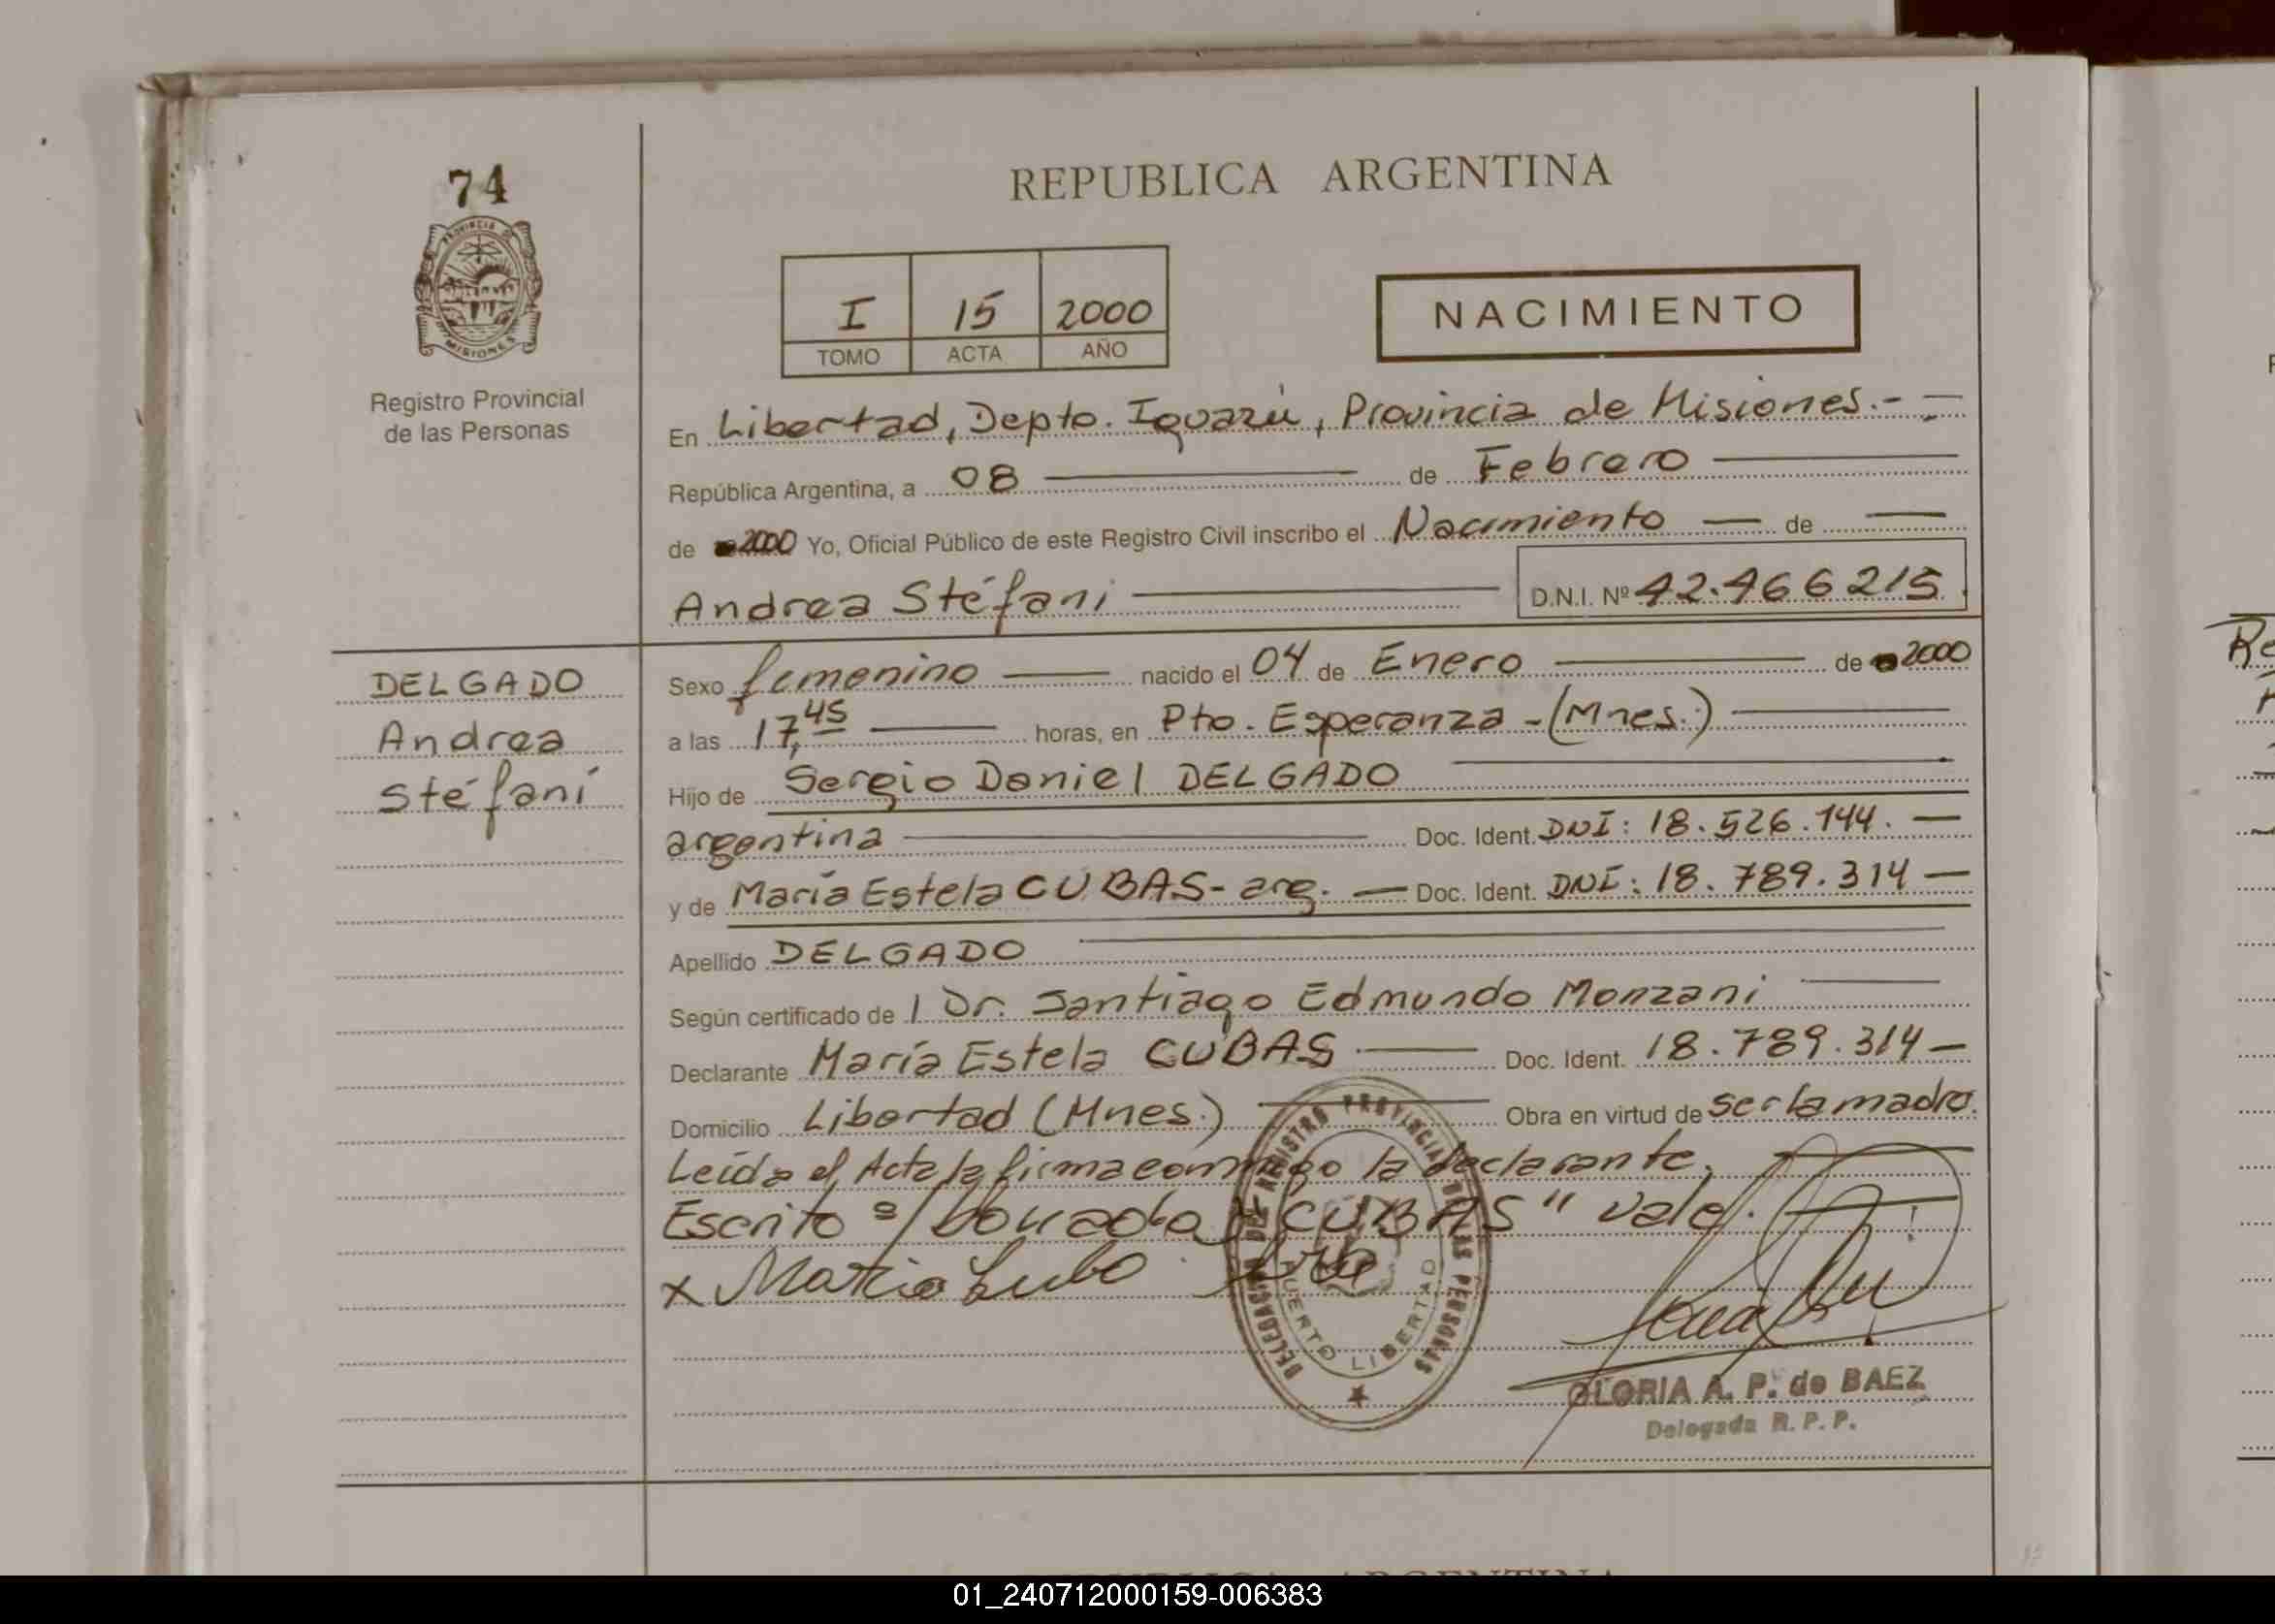 74
PROVINCIA DE
MISIONES
Registro Provincial
de las Personas
REPUBLICA ARGENTINA
I 15 2000
TOMO ACTA AÑO
NACIMIENTO
En Libertad, Depto. Iguazú, Provincia de Misiones.-
República Argentina, a 08 de Febrero
de 2000 Yo, Oficial Público de este Registro Civil inscribo el Nacimiento de
Andrea Stéfani D.N.I. Nº 42.466215
DELGADO
Andrea
Stéfaní
Sexo femenino nacido el 04 de Enero de 2000
a las 17,45 horas, en Pto. Esperanza -(Mnes.)
Hijo de Sergio Daniel DELGADO
argentina Doc. Ident. DNI: 18.526.144.
y de María Estela CUBAS- arg. Doc. Ident. DNI: 18.789.314
Apellido DELGADO
Según certificado de l Dr. Santiago Edmundo Monzani
Declarante María Estela CUBAS Doc. Ident. 18.789.314
Domicilio Libertad (Mnes.) Obra en virtud de ser la madre.
Leída el Acta la firma conmigo la declarante.
Escrito s/ borrado "CUBAS" vale.
x
DELEGACION DEL REGISTRO PROVINCIAL DE LAS PERSONAS
PUERTO LIBERTAD
GLORIA A. P. de BAEZ
Delegada R. P. P.
REPUBLICA ARGENTINA
01_240712000159-006383